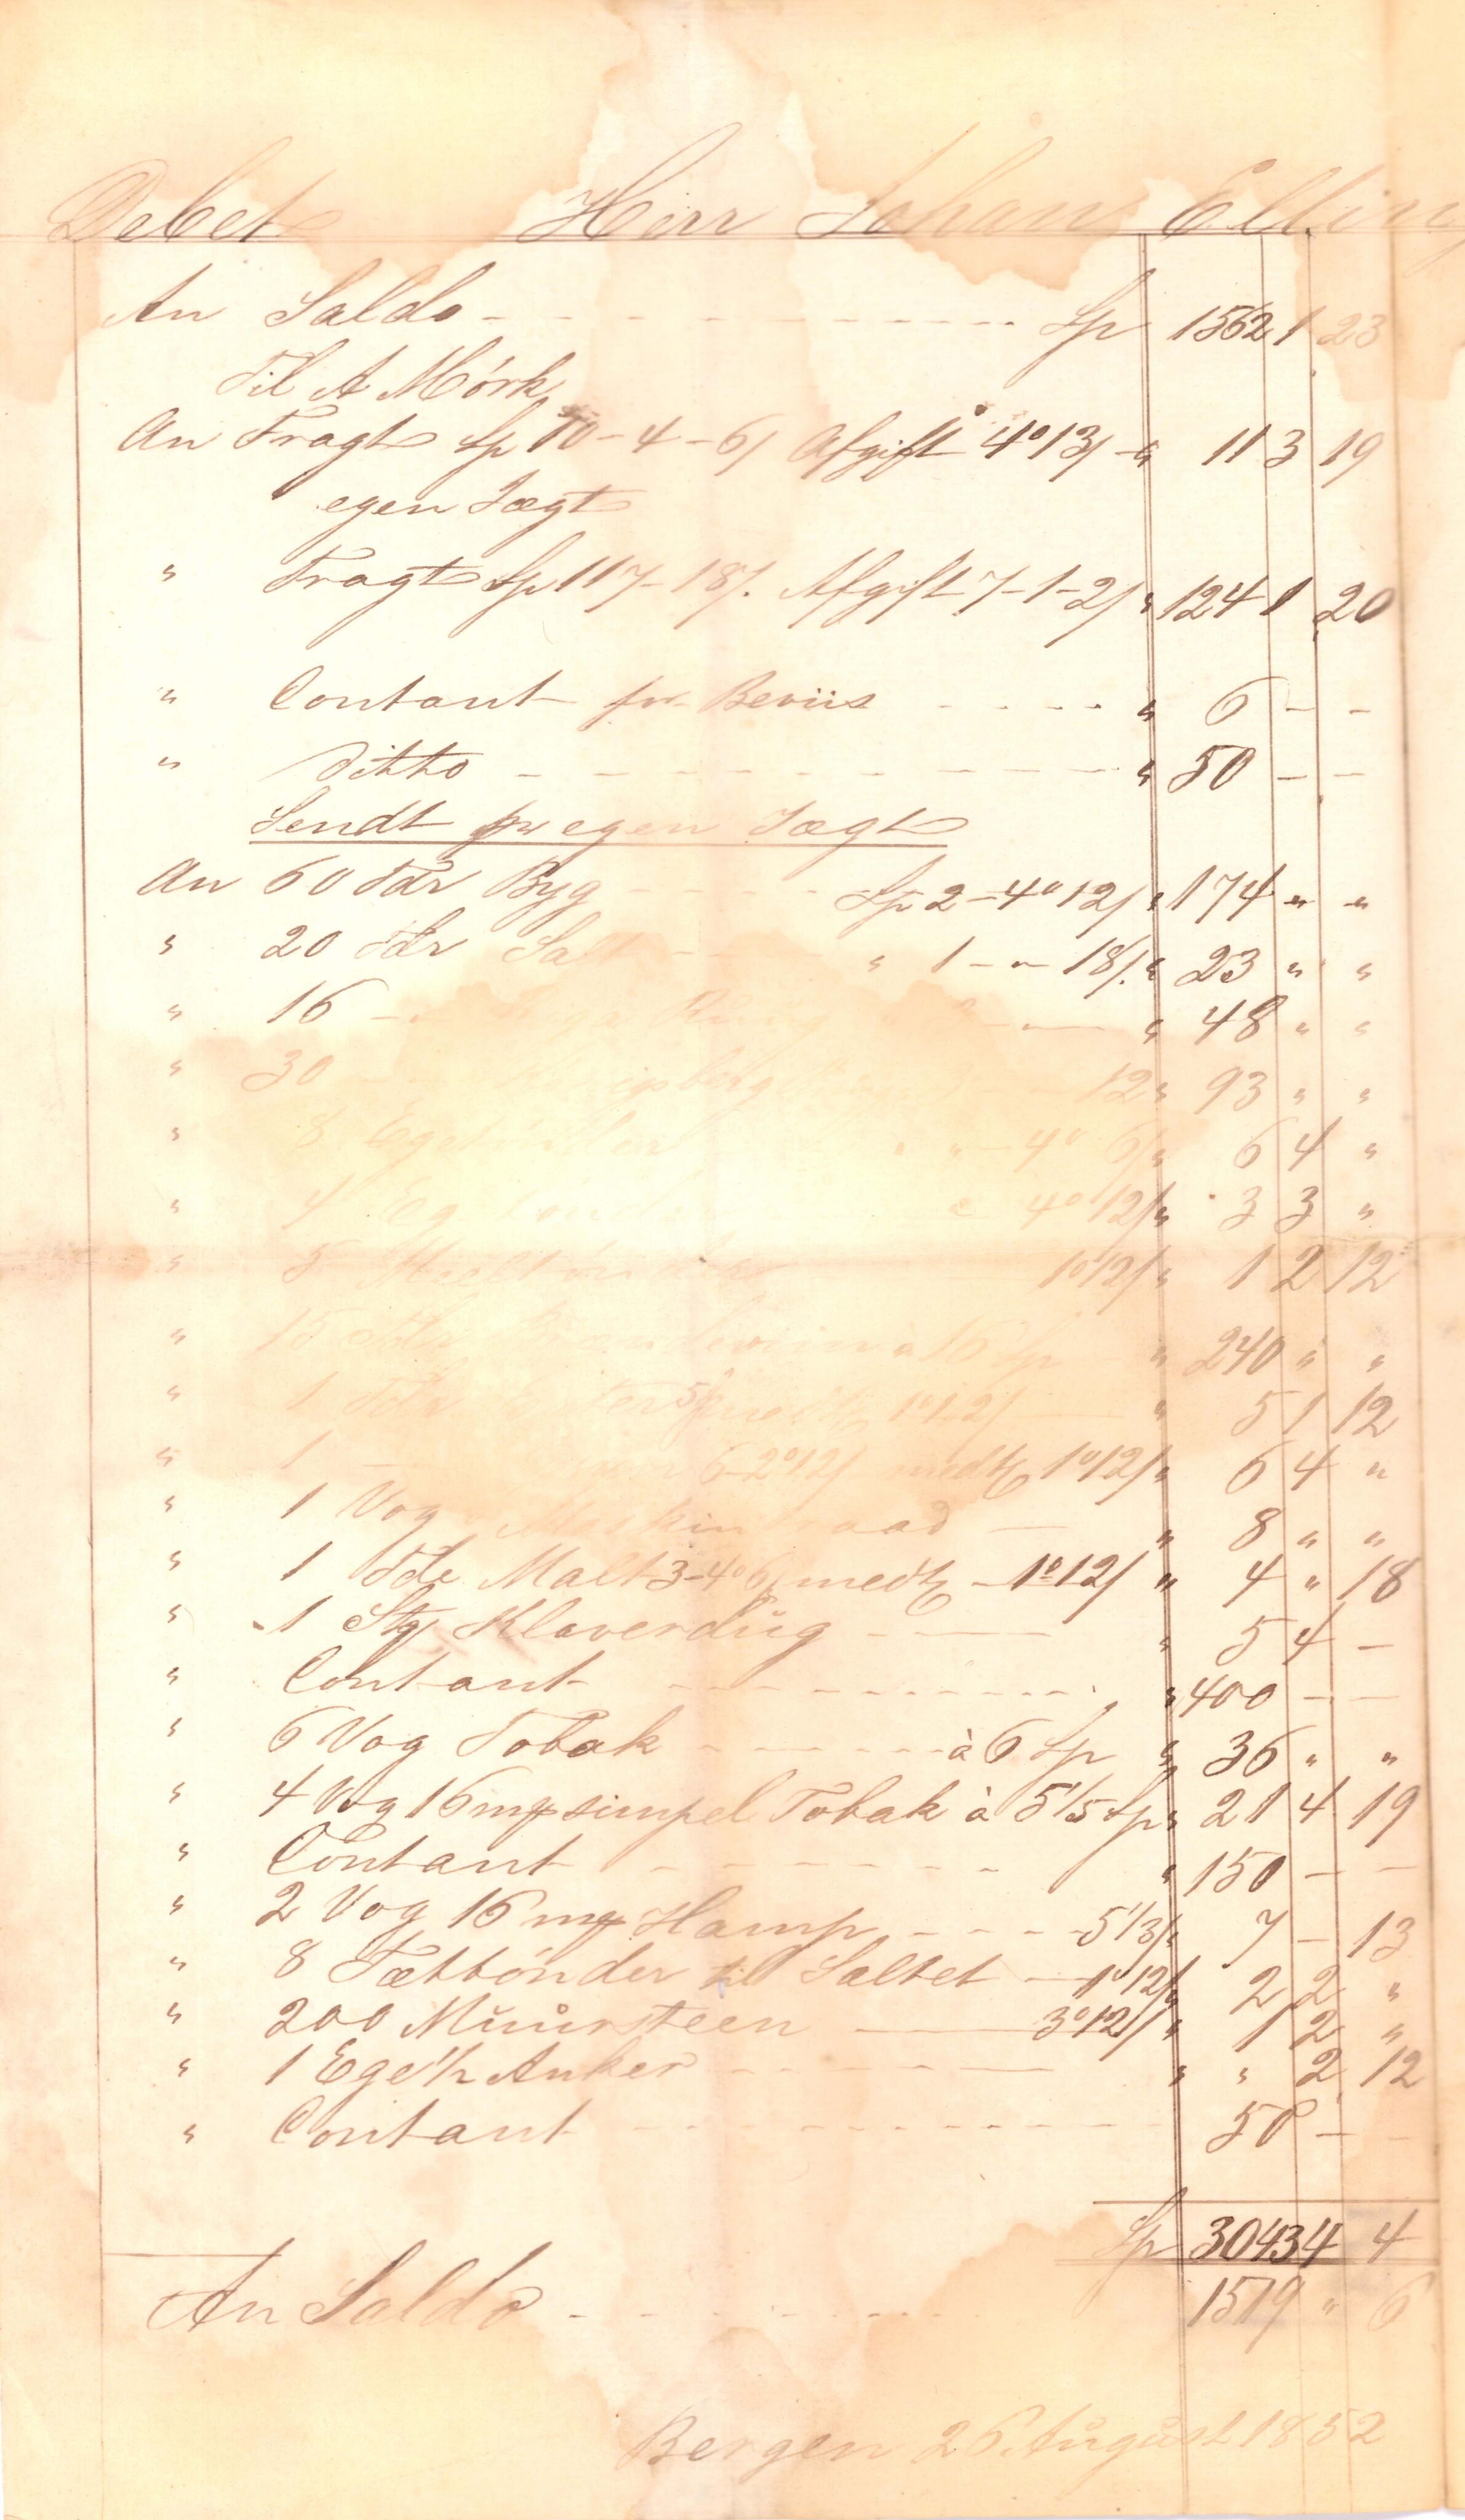 Debet Herr Johan Elling
An Saldo - - - - - Sp 1562 1 23
Til A Mörk
An Fragt Sp 10-4-6/ Afgift 4°13/ " 11 3 19
egen Jægt
" Fragt Sp 117-18/. Afgift 7-1-2/ " 124 1 20
" Contant for Beviis - - - - " 6 - -
" Ditto - - - - - " 50 - -
Sendt pr egen Jægt
An 60 Tdr Byg - - - Sp 2-4°12/ " 174 " "
" 20 Tdr Salt - - - " 1-"-18/. " 23 " "
" 16 - " 48 " "
" 30 - 12 " 93 " "
" 8 - 4° 6/ " 6 4 "
" 4 4°12/ " 3 3 "
" 5 1°12/ " 1 2 12
" 15 Brændeviin à 16 Sp " 240 " "
" 1 Tdr medtr 1°12/ - " 5 1 12
" 1 - 6-2°12/ medtr 1°12/ " 6 4 "
" 1 Vog - " 8 " "
" 1 Tde Malt 3-4°6/ medtr - 1°12/ " 4 " 18
" 1 Stk Klaverdug - - " 5 4 -
" Contant - - - - - " 400 - -
" 6 Vog Tobak - - - - à 6 Sp " 36 " "
" 4 Vog 16 mk simpel Tobak à 5 1/5 Sp " 21 4 19
" Contant - - - - - " 150 - -
" 2 Vog 16 mk Hamp - - - - 5 1/3/ " 7 - 13
" 8 Tættönder til Saltet - 1°12/ " 2 2 "
" 200 Muursteen - 3°12/ " 1 2 "
" 1 Ege 1/2 Anker - - - " " 2 12
" Contant - - - - - 50 - -
Sp 3043 4 4
An Saldo - - - - - 1519 " 6
Bergen 26 August 1852